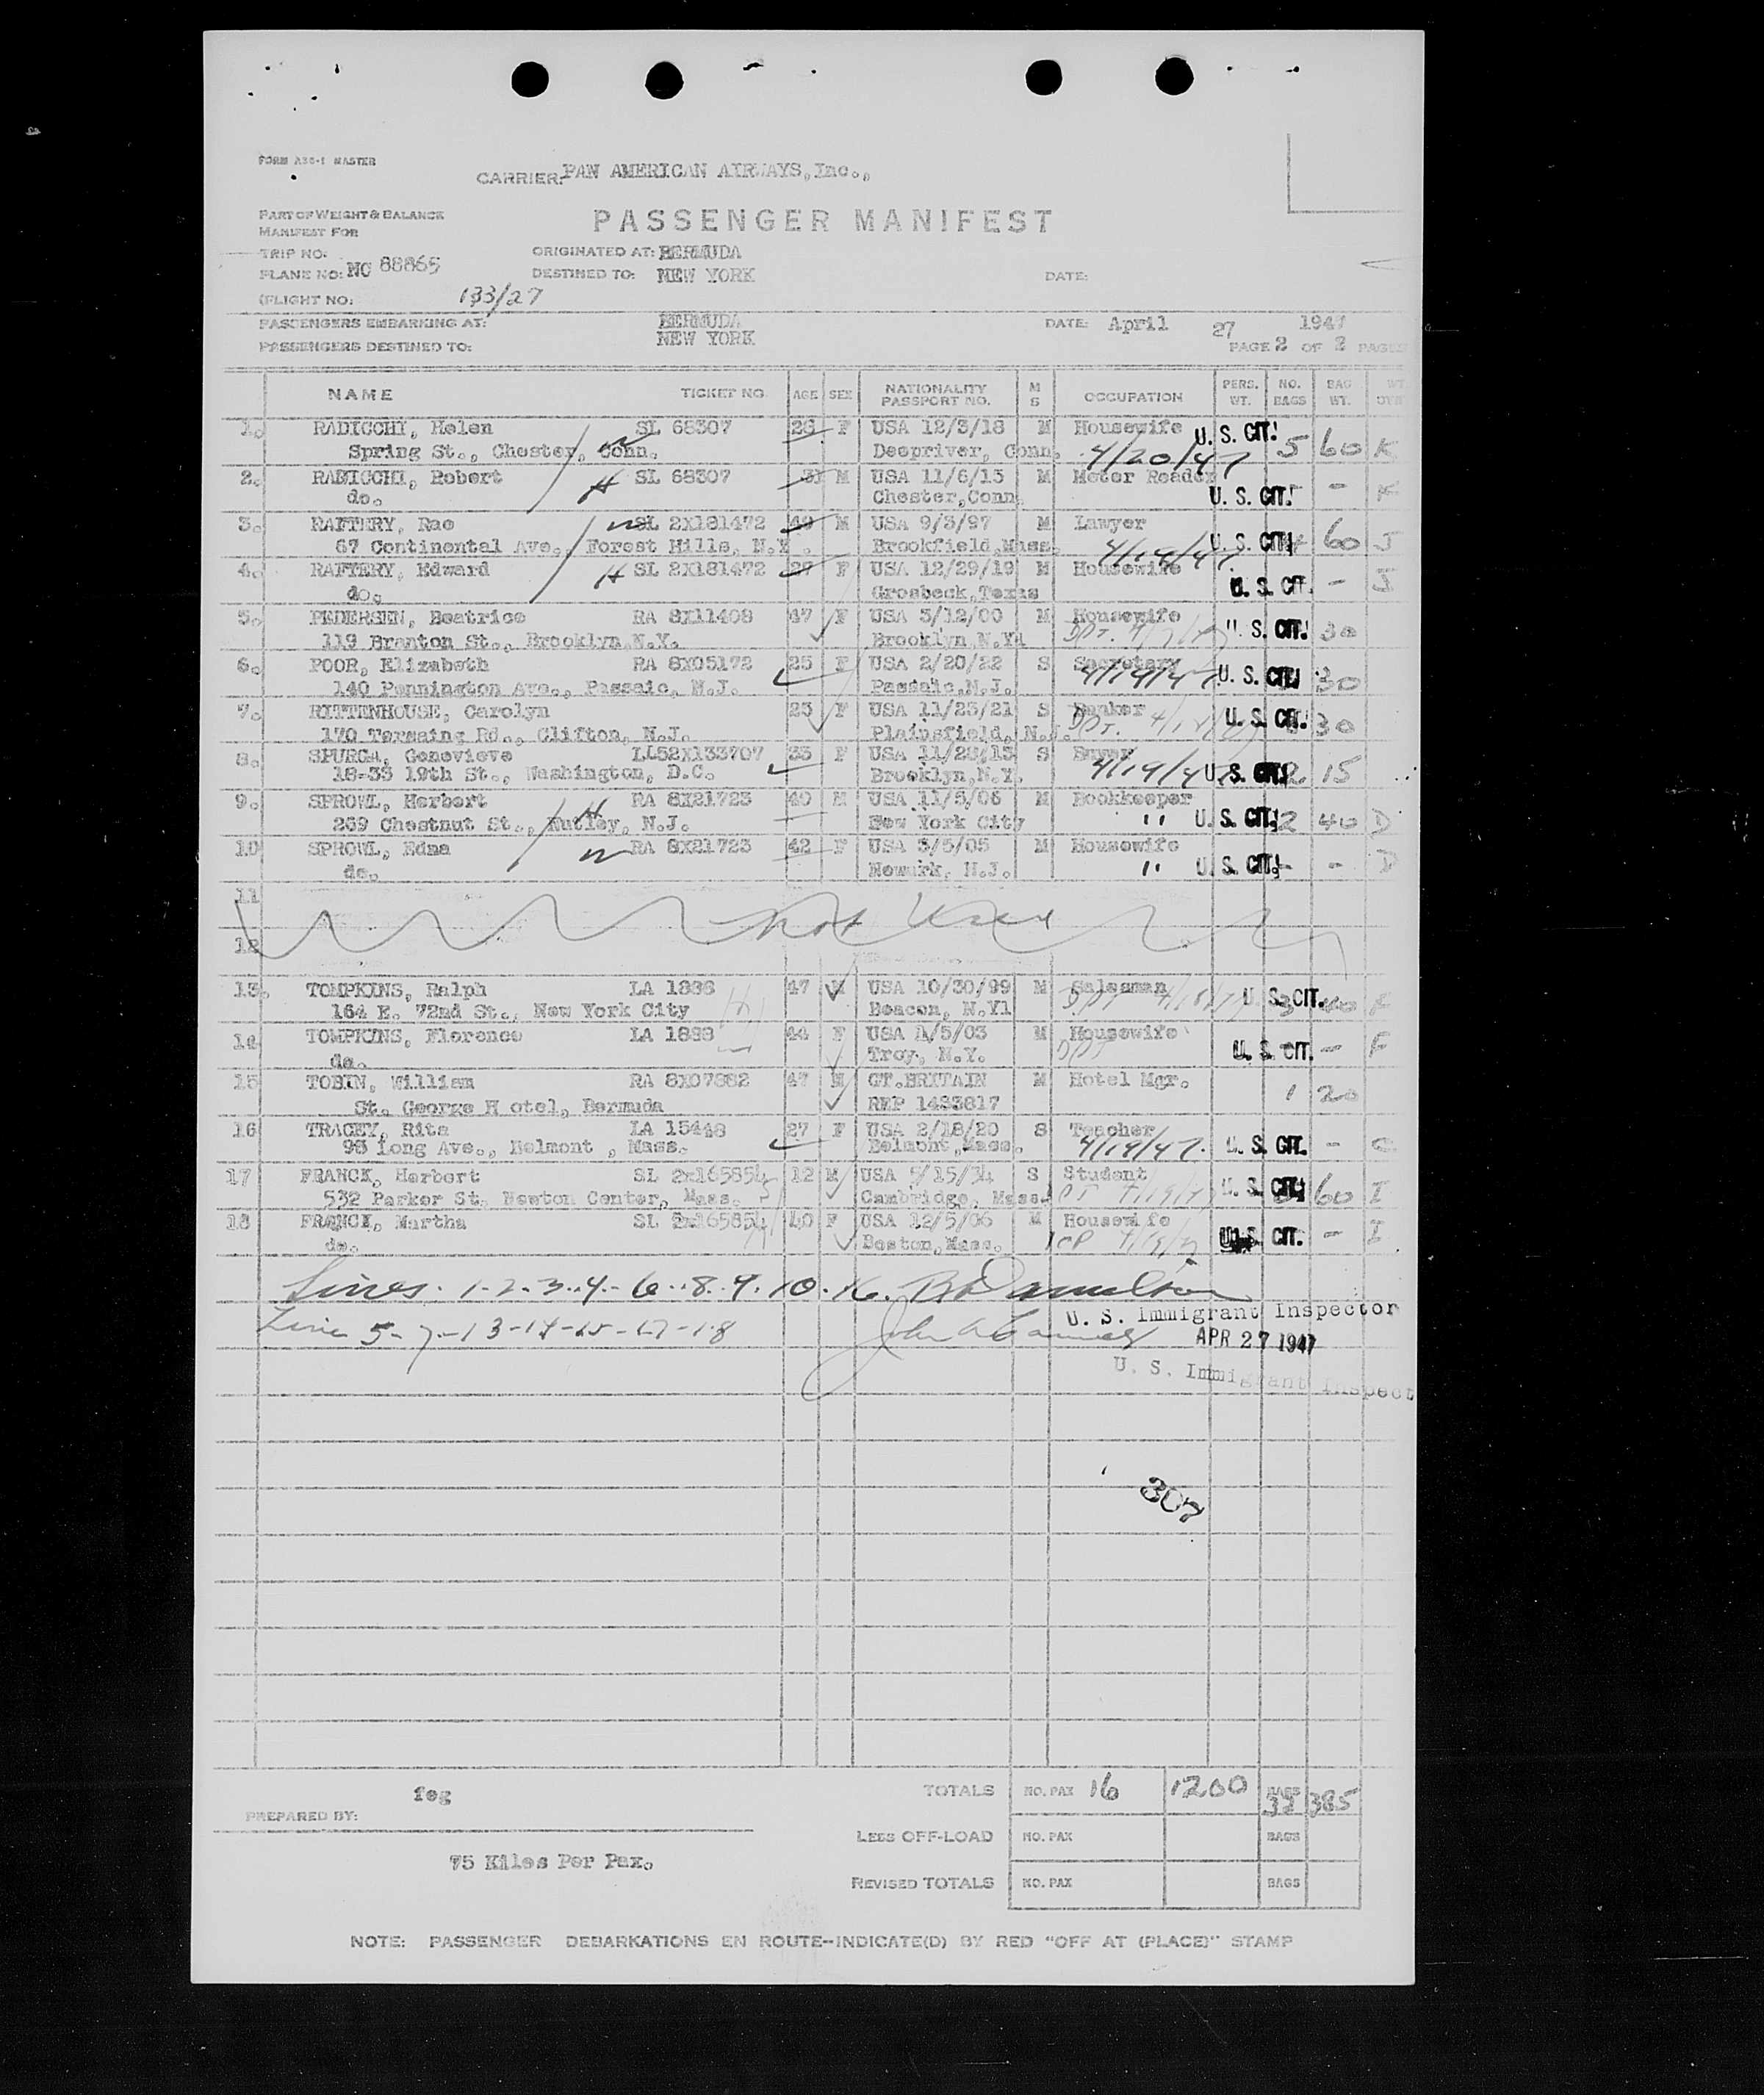 FORM A36-1 MASTER
CARRIER: PAN AMERICAN AIRWAYS, Inc.,
PART OF WEIGHT & BALANCE
MANIFEST FOR
PASSENGER MANIFEST
TRIP NO. ORIGINATED AT: BERMUDA
PLANE NO: NC 88865 DESTINED TO: NEW YORK DATE:
(FLIGHT NO: 133/27
PASSENGERS EMBARKING AT: BERMUDA DATE: April 27 1947
PASSENGERS DESTINED TO: NEW YORK PAGE 2 OF 2 PAGES
NAME TICKET NO. AGE SEX NATIONALITY PASSPORT NO. M S OCCUPATION PERS. WT. NO. BAGS BAG WT. WT.
1. RADICCHI, Helen SL 68307 28 F USA 12/3/18 M Housewife U. S. CIT. 5 60 K
Spring St., Chester, Conn. Deepriver, Conn. 4/20/47
2. RADICCHI, Robert H SL 68307 31 M USA 11/6/15 M Meter Reader U. S. CIT. - - K
do. Chester, Conn.
3. RAFTERY, Rae SL 2X181472 49 M USA 9/3/97 M Lawyer U. S. CIT. 60 J
67 Continental Ave., Forest Hills, N.Y. Brookfield, Mass. 4/19/47
4. RAFTERY, Edward H SL 2X181472 27 F USA 12/29/19 M Housewife U. S. CIT. - J
do. Grosbeck, Texas
5. PEDERSEN, Beatrice RA 8X11408 47 F USA 3/12/00 M Housewife U. S. CIT. 30
119 Branton St., Brooklyn, N.Y. Brooklyn N.Y.
6. POOR, Elizabeth RA 8X05172 25 F USA 2/20/22 S Secretary U. S. CIT. 30
140 Pennington Ave., Passaic, N.J. Passaic, N.J. 4/19/47
7. RITTENHOUSE, Carolyn 25 F USA 11/23/21 S Banker U. S. CIT. 30
170 Rd., Clifton, N.J. Plainsfield, N.J.
8. SPURGA, Genevieve LL52X133707 33 F USA 11/28/13 S Buyer U. S. CIT. 2 15
18-33 19th St., Washington, D.C. Brooklyn, N.Y. 4/19/47
9. SPROWL, Herbert H RA 8X21723 40 M USA 11/5/06 M Bookkeeper U. S. CIT. 2 40 D
269 Chestnut St., Nutley, N.J. New York City "
10 SPROWL, Edna RA 8X21723 42 F USA 3/5/05 M Housewife U. S. CIT. - - D
do. Newark, N.J. "
11
not Used
12
13. TOMPKINS, Ralph LA 1888 47 M USA 10/30/99 M Salesman U. S. CIT. 3 40 F
164 E. 72nd St., New York City Beacon, N.Y.
14 TOMPKINS, Florence LA 1888 44 F USA 1/5/03 M Housewife U. S. CIT. - F
do. Troy, N.Y.
15 TOBIN, William RA 8X07882 47 M GT. BRITAIN M Hotel Mgr. 1 20
St. George H otel, Bermuda REP 1433817
16 TRACEY, Rita LA 15448 27 F USA 2/18/20 S Teacher U. S. CIT. -
98 Long Ave., Belmont , Mass. Belmont, Mass. 4/19/47.
17 FRANCK, Herbert SL 2x165854 12 M USA 5/15/34 S Student U. S. CIT. 60 I
532 Parker St. Newton Center, Mass. Cambridge, Mass.
18 FRANCK, Martha SL 2x165854 40 F USA 12/5/06 M Housewife U.S. CIT. - I
do. Boston, Mass.
Lines. 1-2-3-4-6-8-9-10-16.
U. S. Immigrant Inspector
Line 5-7-13-14-15-17-18
APR 27 1947
U. S. Immigrant Inspect
307
TOTALS NO. PAX 16 1200 BAGS 385
feg
PREPARED BY:
LESS OFF-LOAD NO. PAX BAGS
75 Kilos Per Pax.
REVISED TOTALS NO. PAX BAGS
NOTE: PASSENGER DEBARKATIONS EN ROUTE--INDICATE(D) BY RED "OFF AT (PLACE)" STAMP